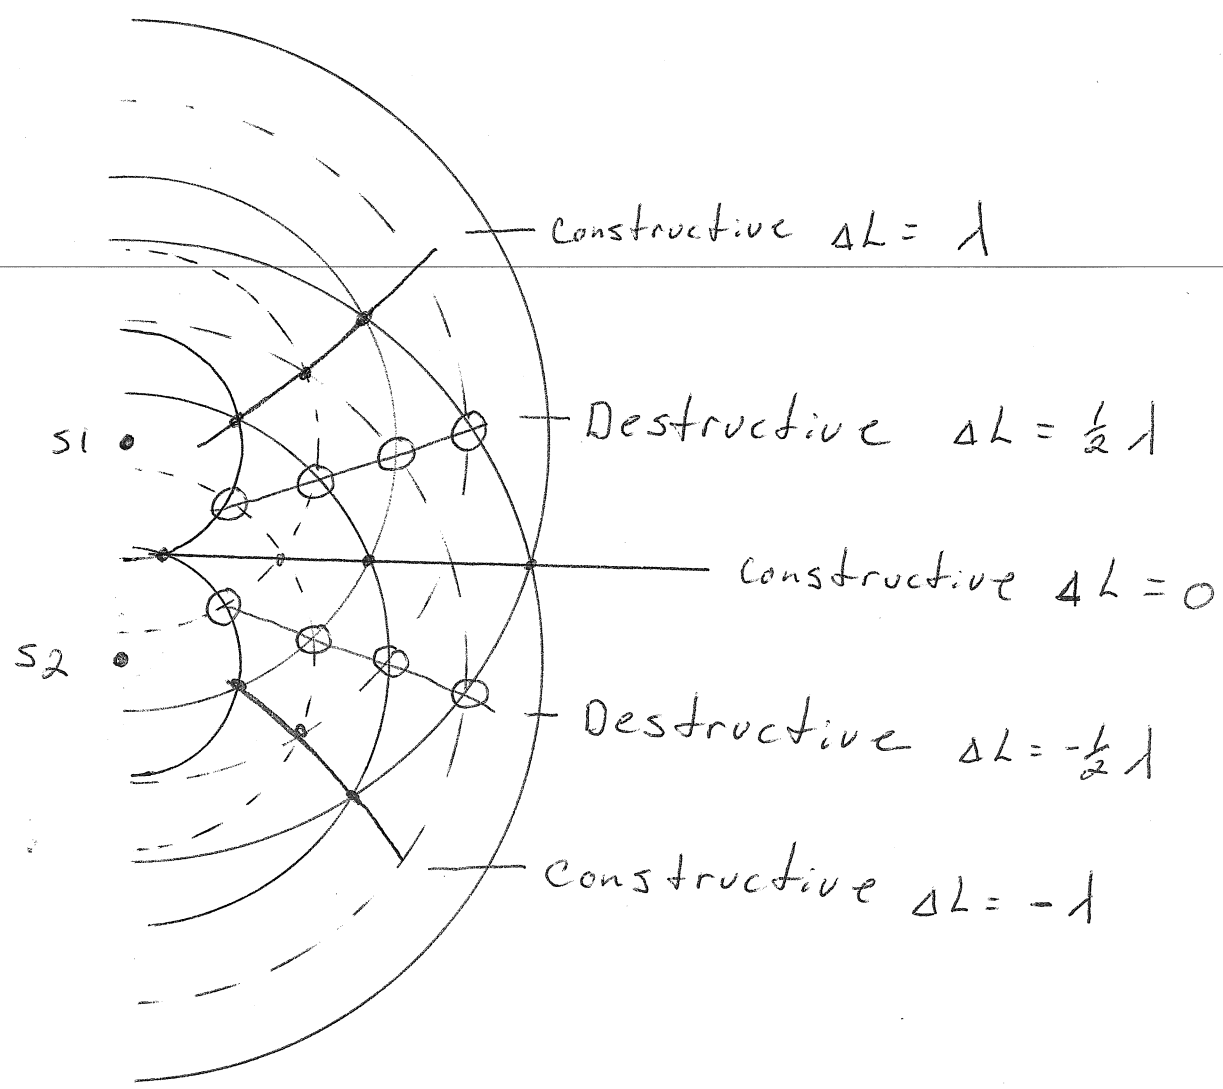 Constructive ΔL = λ
Destructive ΔL = 1/2 λ
S1
Constructive ΔL = 0
S2
Destructive ΔL = -1/2 λ
Constructive ΔL = -λ